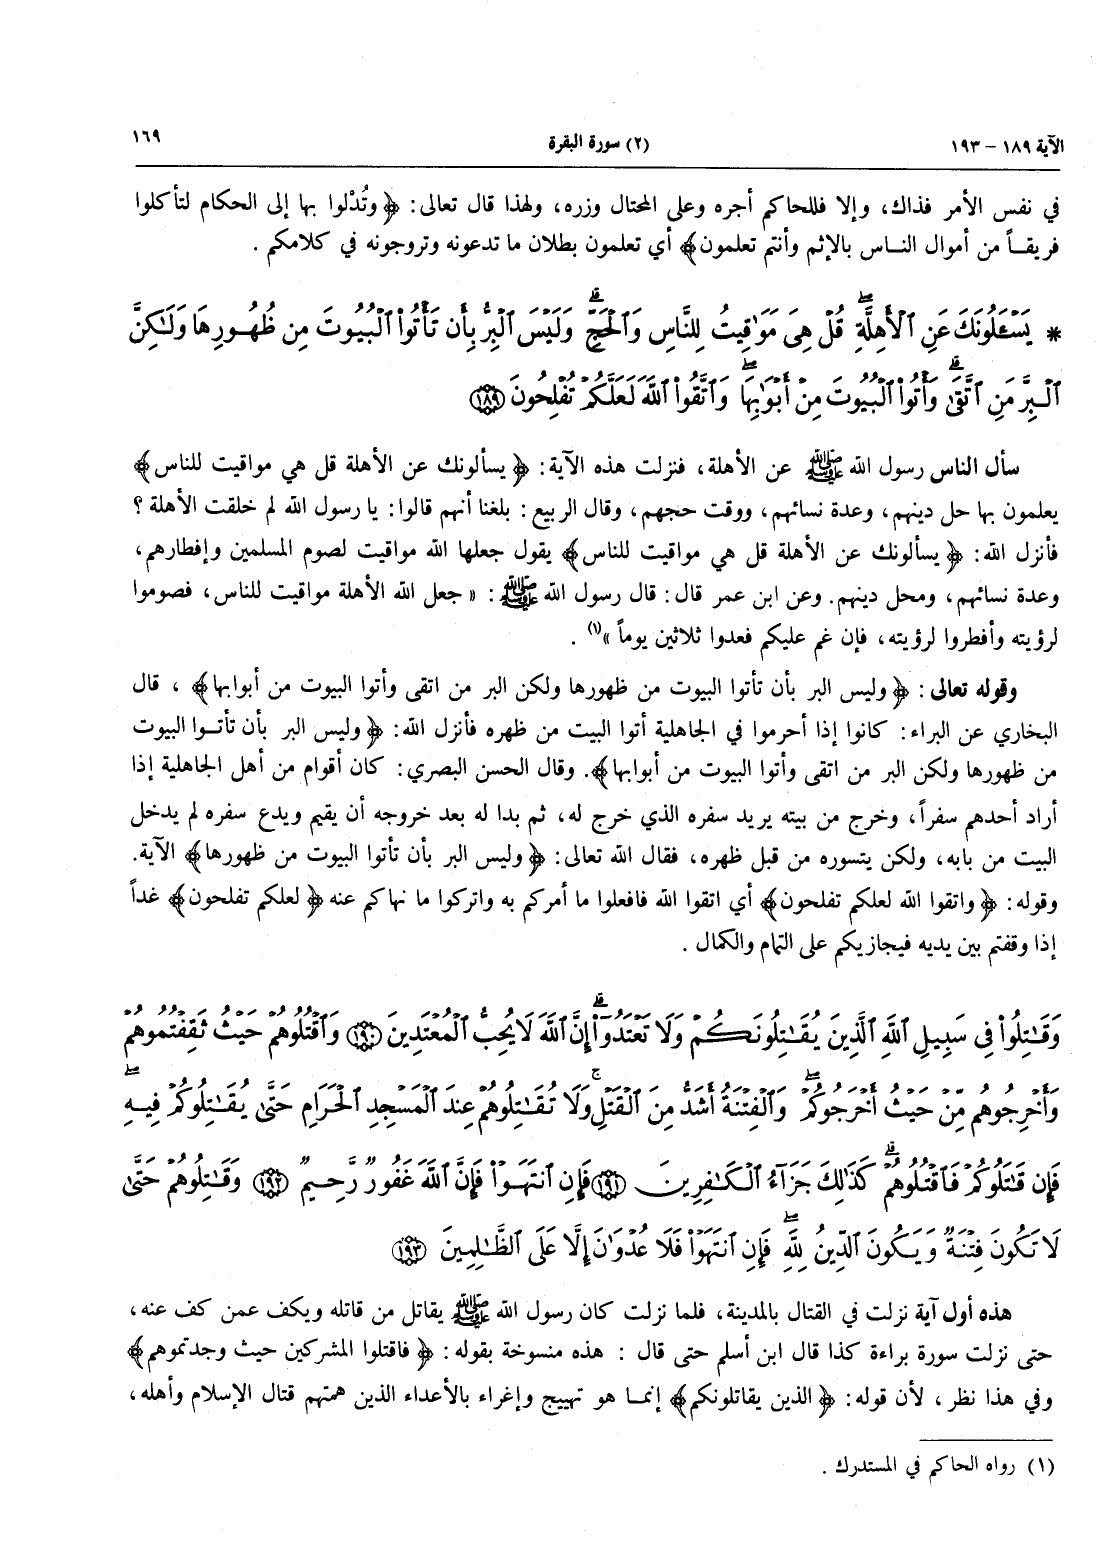 الآية ١٨٩ - ١٩٣ (٢) سورة البقرة ١٦٩
في نفس الأمر فذاك، وإلا فللحاكم أجره وعلى المحتال وزره، ولهذا قال تعالى: ﴿وتُدْلوا بها إلى الحكام لتأكلوا
فريقاً من أموال الناس بالإثم وأنتم تعلمون﴾ أي تعلمون بطلان ما تدعونه وتروجونه في كلامكم .
* يَسْـَٔلُونَكَ عَنِ ٱلْأَهِلَّةِ ۖ قُلْ هِىَ مَوَٰقِيتُ لِلنَّاسِ وَٱلْحَجِّ ۗ وَلَيْسَ ٱلْبِرُّ بِأَن تَأْتُوا۟ ٱلْبُيُوتَ مِن ظُهُورِهَا وَلَـٰكِنَّ
ٱلْبِرَّ مَنِ ٱتَّقَىٰ ۗ وَأْتُوا۟ ٱلْبُيُوتَ مِنْ أَبْوَٰبِهَا ۖ وَٱتَّقُوا۟ ٱللَّهَ لَعَلَّكُمْ تُفْلِحُونَ ١٨٩
سأل الناس رسول الله ﷺ عن الأهلة، فنزلت هذه الآية: ﴿يسألونك عن الأهلة قل هي مواقيت للناس﴾
يعلمون بها حل دينهم، وعدة نسائهم، ووقت حجهم، وقال الربيع: بلغنا أنهم قالوا: يا رسول الله لم خلقت الأهلة ؟
فأنزل الله: ﴿يسألونك عن الأهلة قل هي مواقيت للناس﴾ يقول جعلها الله مواقيت لصوم المسلمين وإفطارهم،
وعدة نسائهم، ومحل دينهم. وعن ابن عمر قال: قال رسول الله ﷺ : « جعل الله الأهلة مواقيت للناس، فصوموا
لرؤيته وأفطروا لرؤيته، فإن غم عليكم فعدوا ثلاثين يوماً »(١) .
وقوله تعالى: ﴿وليس البر بأن تأتوا البيوت من ظهورها ولكن البر من اتقى وأتوا البيوت من أبوابها﴾ ، قال
البخاري عن البراء: كانوا إذا أحرموا في الجاهلية أتوا البيت من ظهره فأنزل الله: ﴿وليس البر بأن تأتوا البيوت
من ظهورها ولكن البر من اتقى وأتوا البيوت من أبوابها﴾. وقال الحسن البصري: كان أقوام من أهل الجاهلية إذا
أراد أحدهم سفراً، وخرج من بيته يريد سفره الذي خرج له، ثم بدا له بعد خروجه أن يقيم ويدع سفره لم يدخل
البيت من بابه، ولكن يتسوره من قبل ظهره، فقال الله تعالى: ﴿وليس البر بأن تأتوا البيوت من ظهورها﴾ الآية.
وقوله: ﴿واتقوا الله لعلكم تفلحون﴾ أي اتقوا الله فافعلوا ما أمركم به واتركوا ما نهاكم عنه ﴿لعلكم تفلحون﴾ غداً
إذا وقفتم بين يديه فيجازيكم على التمام والكمال .
وَقَـٰتِلُوا۟ فِى سَبِيلِ ٱللَّهِ ٱلَّذِينَ يُقَـٰتِلُونَكُمْ وَلَا تَعْتَدُوٓا۟ ۚ إِنَّ ٱللَّهَ لَا يُحِبُّ ٱلْمُعْتَدِينَ ١٩٠ وَٱقْتُلُوهُمْ حَيْثُ ثَقِفْتُمُوهُمْ
وَأَخْرِجُوهُم مِّنْ حَيْثُ أَخْرَجُوكُمْ ۚ وَٱلْفِتْنَةُ أَشَدُّ مِنَ ٱلْقَتْلِ ۚ وَلَا تُقَـٰتِلُوهُمْ عِندَ ٱلْمَسْجِدِ ٱلْحَرَامِ حَتَّىٰ يُقَـٰتِلُوكُمْ فِيهِ ۖ
فَإِن قَـٰتَلُوكُمْ فَٱقْتُلُوهُمْ ۗ كَذَٰلِكَ جَزَآءُ ٱلْكَـٰفِرِينَ ١٩١ فَإِنِ ٱنتَهَوْا۟ فَإِنَّ ٱللَّهَ غَفُورٌ رَّحِيمٌ ١٩٢ وَقَـٰتِلُوهُمْ حَتَّىٰ
لَا تَكُونَ فِتْنَةٌ وَيَكُونَ ٱلدِّينُ لِلَّهِ ۖ فَإِنِ ٱنتَهَوْا۟ فَلَا عُدْوَٰنَ إِلَّا عَلَى ٱلظَّـٰلِمِينَ ١٩٣
هذه أول آية نزلت في القتال بالمدينة، فلما نزلت كان رسول الله ﷺ يقاتل من قاتله ويكف عمن كف عنه،
حتى نزلت سورة براءة كذا قال ابن أسلم حتى قال : هذه منسوخة بقوله: ﴿فاقتلوا المشركين حيث وجدتموهم﴾
وفي هذا نظر، لأن قوله: ﴿الذين يقاتلونكم﴾ إنما هو تهييج وإغراء بالأعداء الذين همتهم قتال الإسلام وأهله،
(١) رواه الحاكم في المستدرك .